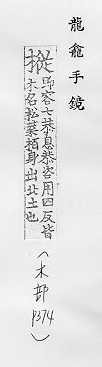 龍龕手鏡
樅
即容七恭息恭咨用四反皆
木名松葉栢身出北土也
(木部
P374)